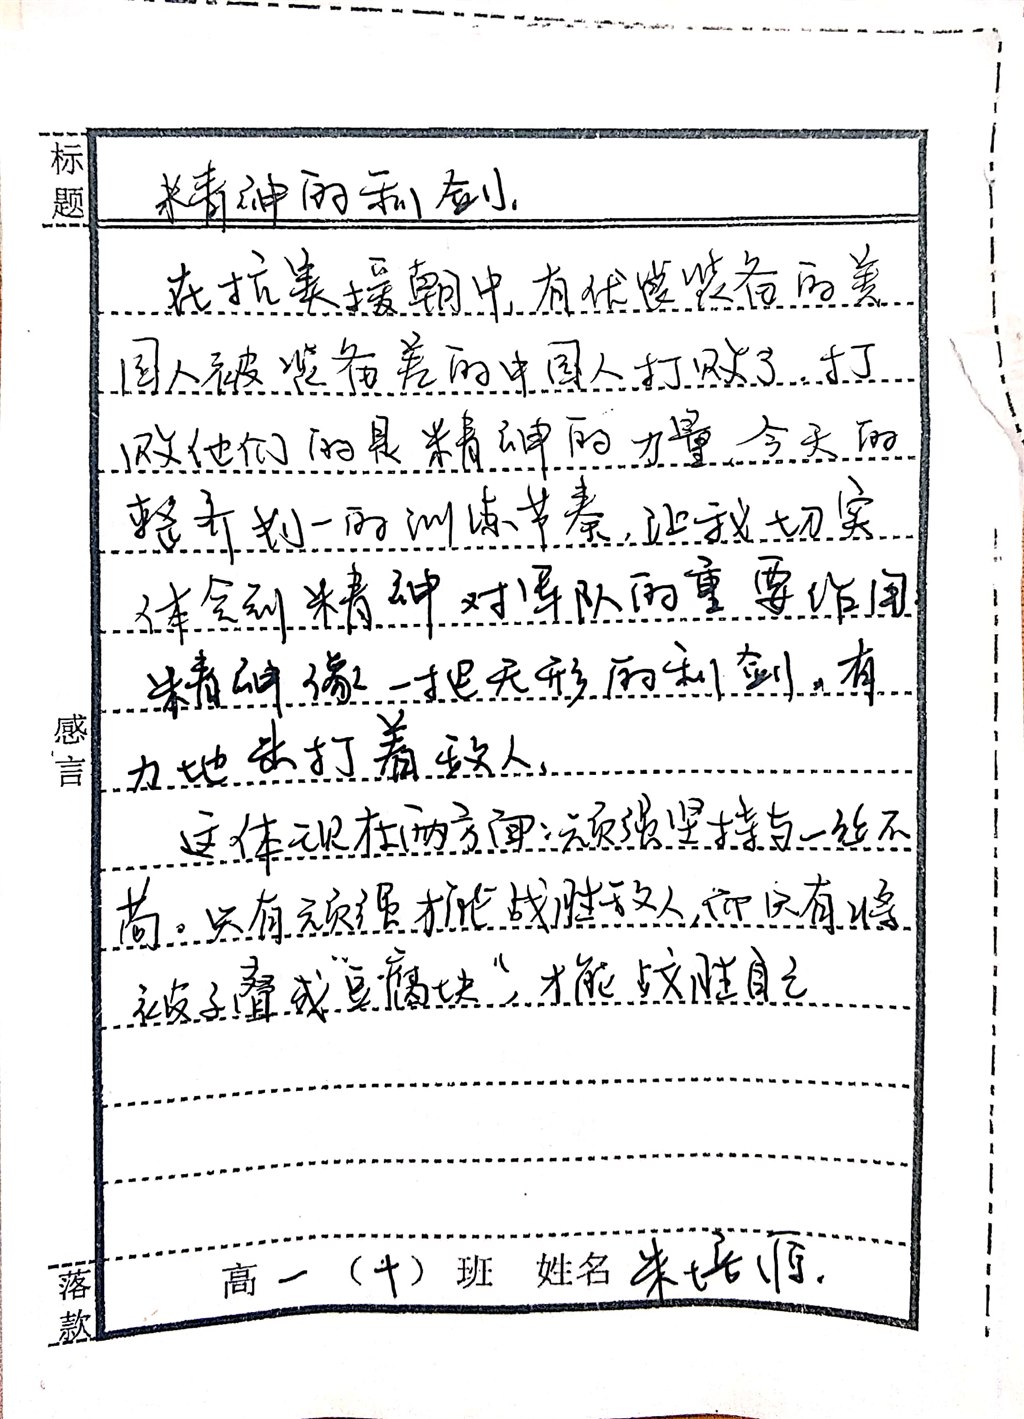 标题
精神的利剑.
在抗美援朝中,有优装装备的美
国人被装备差的中国人打败了.打
败他们的是精神的力量.今天的
整齐划一的训练节奏,让我切实
体会到精神对军队的重要作用.
精神像一把无形的利剑。有
力地击打着敌人.
这体现在两方面:顽强坚持与一丝不
苟。只有顽强才能战胜敌人,而只有将
被子叠成"豆腐块",才能战胜自己
感言
落款
高一(十)班 姓名 朱培源.